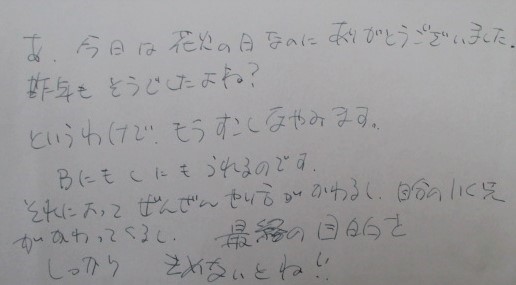 あ、今日は花火の日なのにありがとうございました。
昨年もそうでしたよね?
というわけで、もうすこしなやみます。
BにもCにもうれるのです。
それによってぜんぜんやり方がかわるし、自分のいく先
がかわってくるし、最終の目的を
しっかり きめないとね!!